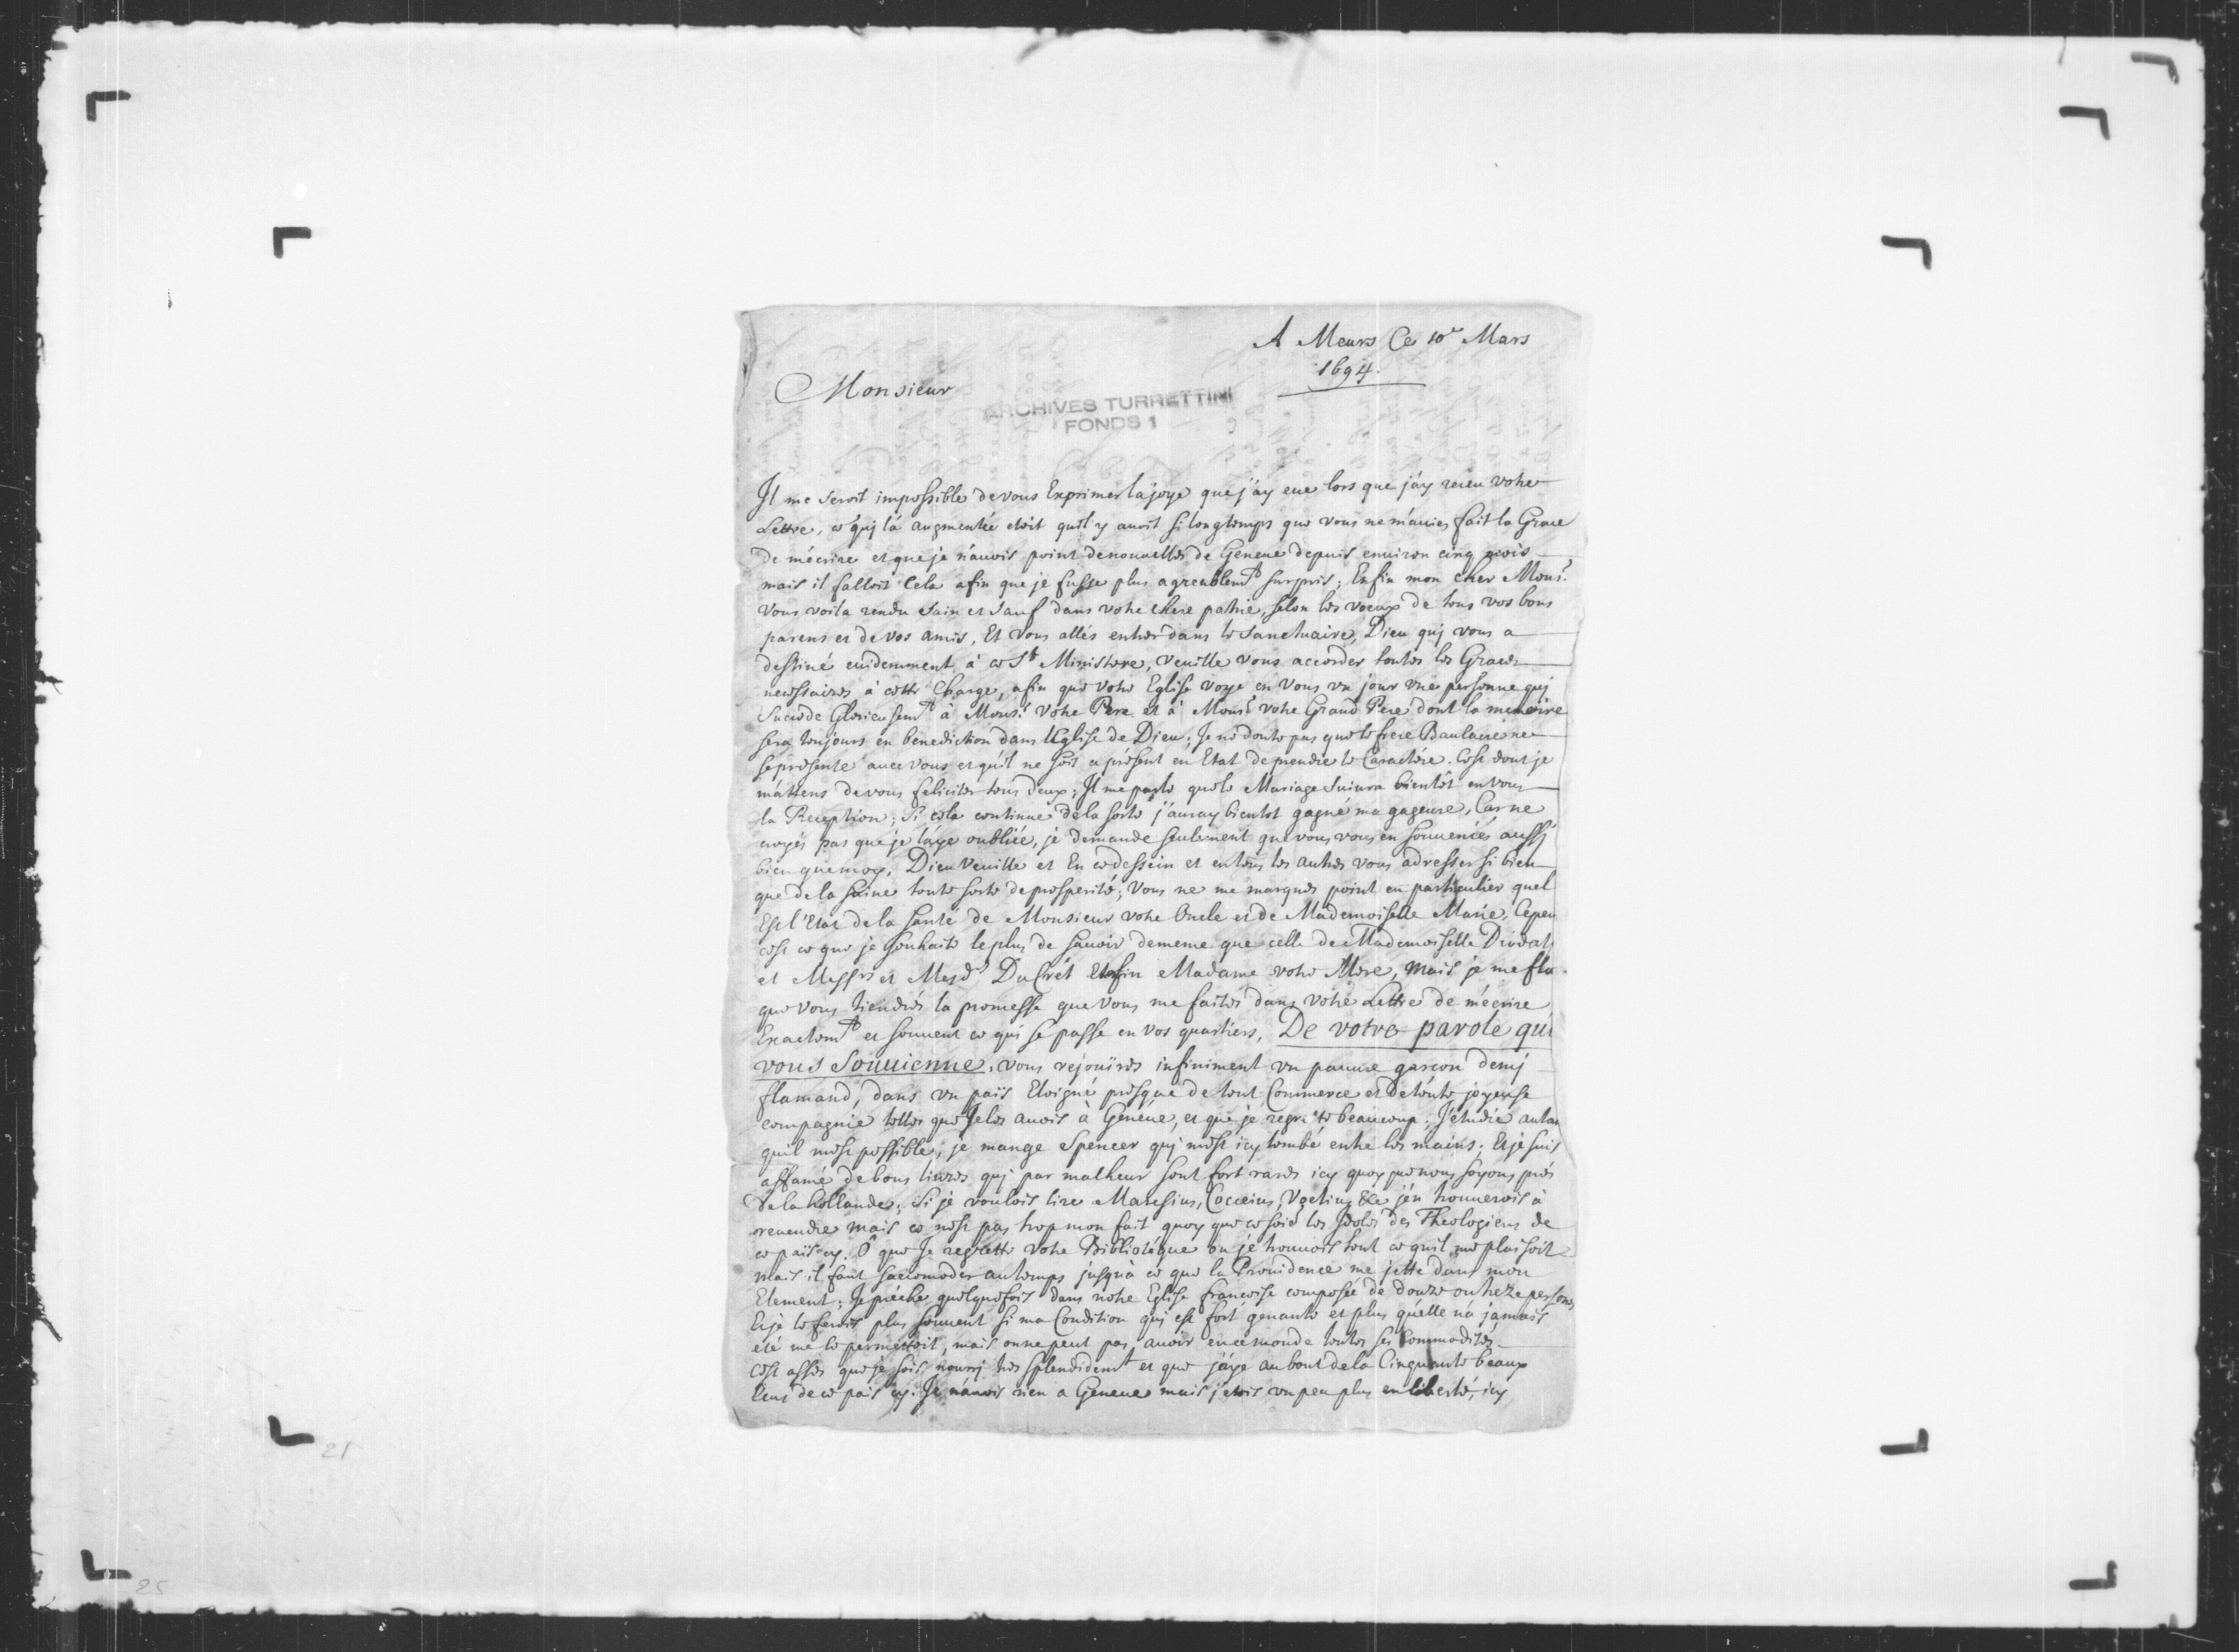 A Meurs Ce 10e Mars
1694.
Monsieur
ARCHIVES TURRETTINI
FONDS 1
Il me seroit impossible de vous Exprimer la joye que j'ay eue lors que j'ay receu votre
Lettre, ce quj l'a augmentée etoit quil y avoit si longtemps que vous ne m'aviés fait la Grace
de m'écrire et que je n'auois point de nouvelles de Geneue depuis enuiron cinq mois
mais il falloit Cela afin que je fusse plus agreablemt surpris; Enfin mon cher Monsr.
Vous voila rendu sain et sauf dans votre chere patrie, selon les voeux de tous vos bons
parens et de vos amis, Et vous allés entrer dans le Sanctuaire, Dieu quj vous a
destiné euidemment à ce St Ministere, veuille vous accorder toutes les Graces
necessaires à cette Charge, afin que votre Eglise voye en vous vn jour vne personne quj
succede Glorieusemt à Monsr votre Pere et à Monsr votre Grand Pere dont la memoire
sera toujours en benediction dans l'Eglise de Dieu; Je ne doute pas que le frere Baulacre ne
se presente auec vous et qu'il ne soit a présent en Etat de prendre le Caractére. C'est dont je
m'attens de vous feliciter tous deux; Il me parle que le Mariage suiura bientôt en vous
la Reception; si cela continue de la sorte j'auray bientot gagné ma gageure, Car ne
croyés pas que je l'aye oubliée, je demande seulement que vous vous en souueniés aussj
bien que moy. Dieu veuille et En ce dessein et en tous les autres vous adresser si bien
que de la suine toute sorte de prosperité; Vous ne me marqués point en particulier quel
Est l'Etat de la santé de Monsieur votre Oncle et de Mademoiselle Marie, Cepen
c'est ce que je souhaite le plus de sauoir de meme que celle de Mademoiselle Diodati
et Messrs et Mesds DuCrét Enfin Madame votre Mere, Mais je me fla
que vous tiendrés la promesse que vous me faites dans votre Lettre de m'écrire
Exactemt et souuent ce quj se passe en vos quartiers, De votre parole qui
vous Souuienne, vous rejouïrés infiniment vn pauure garçon demj
flamand, dans vn païs Eloigné presque de tout Commerce et de toute joyeuse
compagnie telles que Je les auois à Genéue, et que je regrette beaucoup; J'étudie autan
qu'il m'est possible, je mange Spencer quj m'est icy tombé entre les mains; Et je suis
affamé de bons liures quj par malheur sont fort rares icy quoy que nous soyons prés
de la hollande; si je voulois lire Maresius, Cocceius, Voetius &c j'en trouuerois à
reuendre mais ce n'est pas trop mon fait quoy que ce soie les Idoles des Theologiens de
ce païs cy. Ô que Je regrette votre Bibliotéque ou je trouuois tout ce qu'il me plaisoit
mais il faut s'accomoder au temps jusqu'à ce que la Prouidence me jette dans mon
Element; Je préche quelquefois dans notre Eglise francoise composée de douze ou treze persones
Et je le ferois plus souuent si ma Condition quj est fort genante et plus qu'elle n'a jamais
été me le permettoit, mais on ne peut pas auoir en ce monde toutes ses Commodités
C'est assés que je sois nourrj tres splendidemt et que j'aye au bout de la Cinquante beaux
Ecus de ce païs cy. Je n'auois rien a Geneue mais j'etois vn peu plus en liberté, icy
21
25